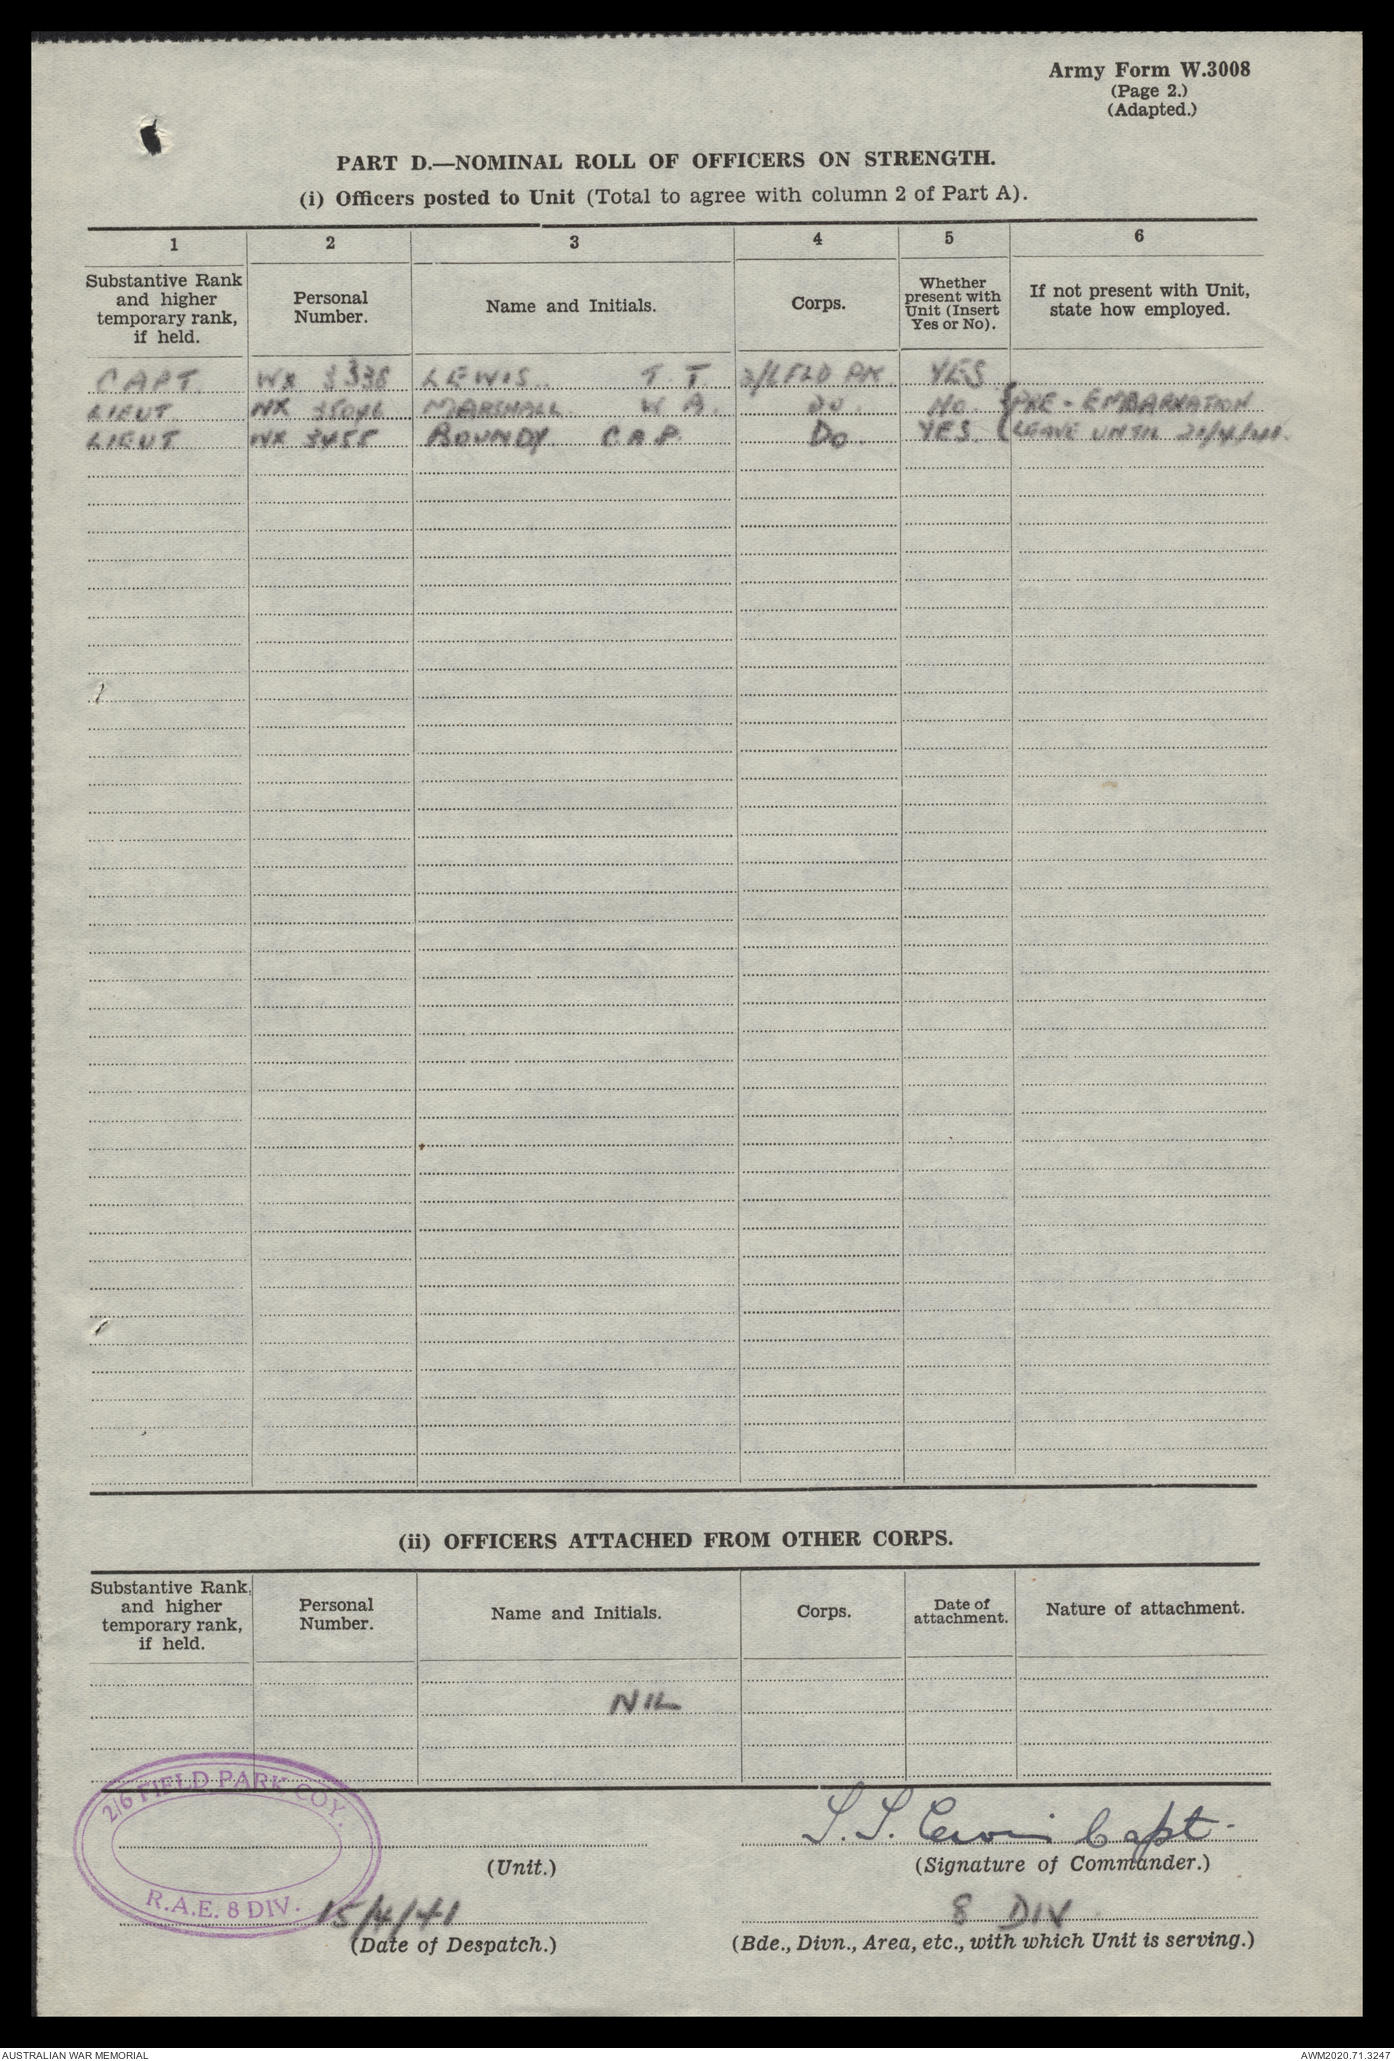 Army Form W.3008
(Page 2.)
(Adapted.)
PART D.—NOMINAL ROLL OF OFFICERS ON STRENGTH.
(i) Officers posted to Unit (Total to agree with column 2 of Part A).
1 2 3 4 5 6
Substantive Rank and higher temporary rank, if held. Personal Number. Name and Initials. Corps. Whether present with Unit (Insert Yes or No). If not present with Unit, state how employed.
CAPT. WX 3338 LEWIS. T. T. 2/6 FLD PK. YES
LIEUT MARSHALL. W A. DO. NO. PRE-EMBARKATION
LIEUT WX 3455 BOUNDY C A P. DO. YES. LEAVE UNTIL 21/4/41.
(ii) OFFICERS ATTACHED FROM OTHER CORPS.
Substantive Rank, and higher temporary rank, if held. Personal Number. Name and Initials. Corps. Date of attachment. Nature of attachment.
NIL
2/6 FIELD PARK COY.
R.A.E. 8 DIV.
T. T. Lewis Capt.
(Unit.) (Signature of Commander.)
15/4/41 8 DIV
(Date of Despatch.) (Bde., Divn., Area, etc., with which Unit is serving.)
AUSTRALIAN WAR MEMORIAL AWM2020.71.3247